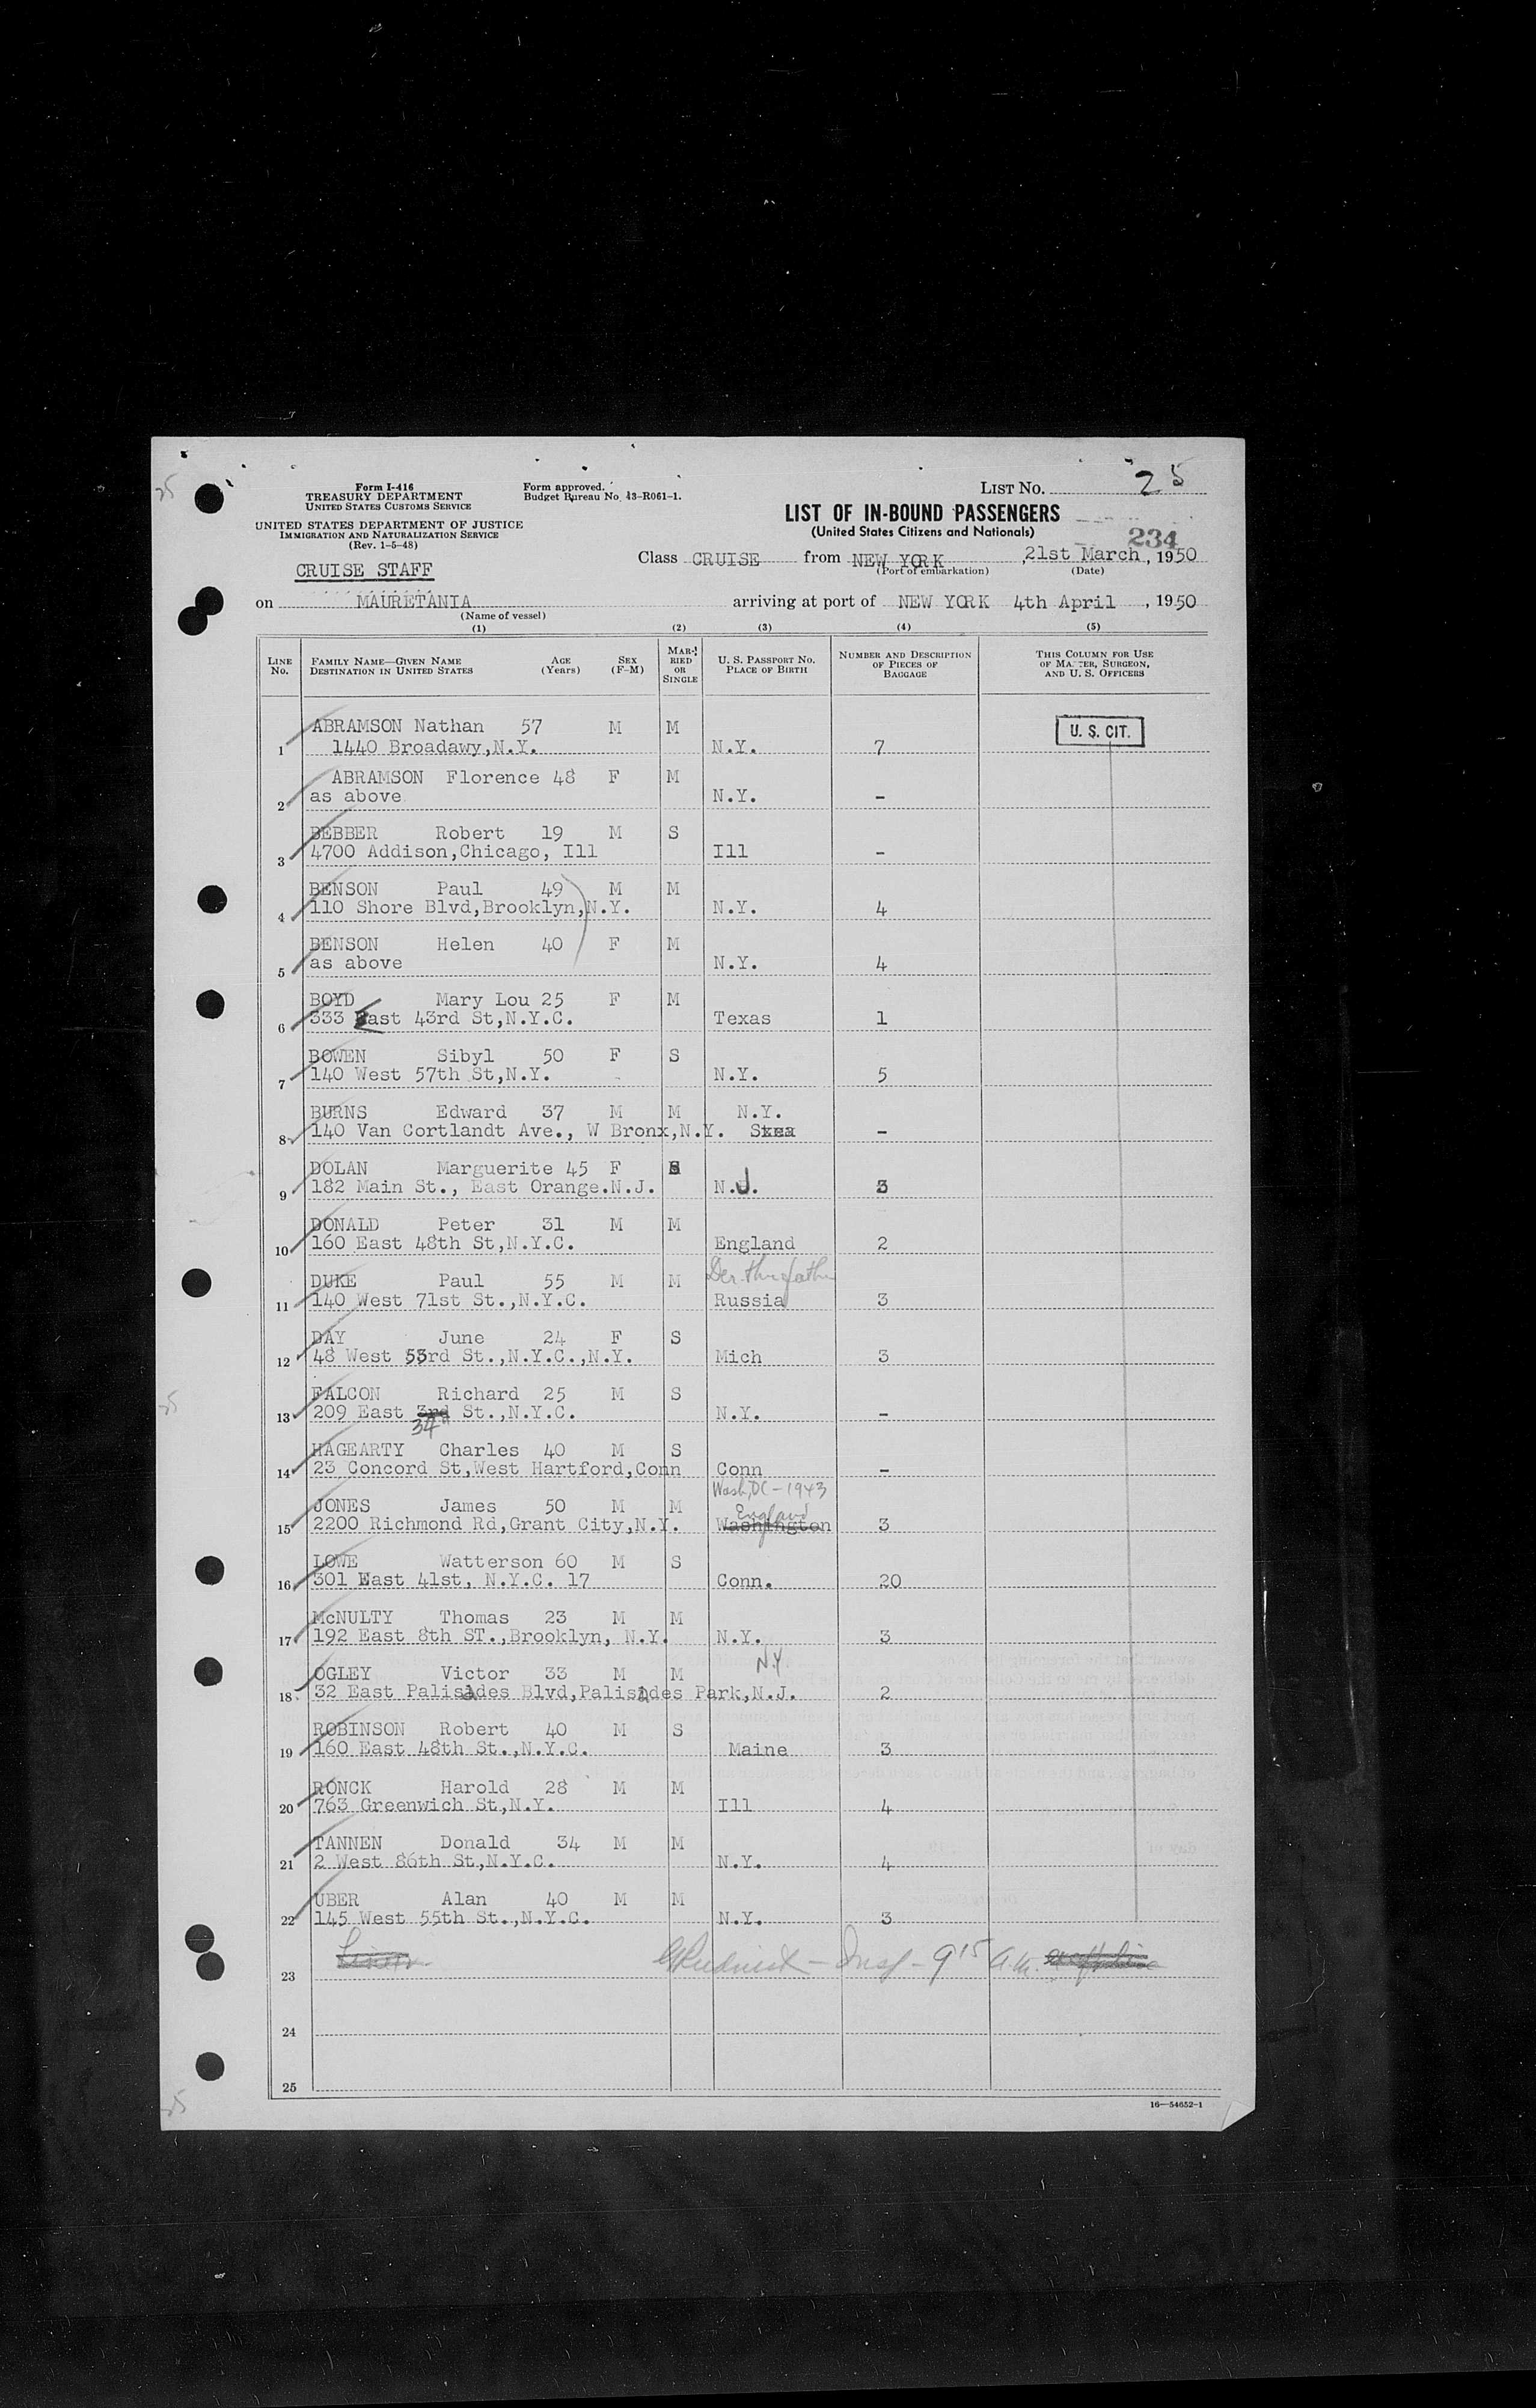 Form I-416
TREASURY DEPARTMENT
UNITED STATES CUSTOMS SERVICE
UNITED STATES DEPARTMENT OF JUSTICE
IMMIGRATION AND NATURALIZATION SERVICE
(Rev. 1-5-48)
Form approved.
Budget Bureau No. 43-R061-1.
LIST NO. 25
LIST OF IN-BOUND PASSENGERS
(United States Citizens and Nationals)
234
CRUISE STAFF
Class CRUISE from NEW YORK, 21st March, 1950
(Port of embarkation) (Date)
on MAURETANIA arriving at port of NEW YORK 4th April, 1950
(Name of vessel)
(1) (2) (3) (4) (5)
LINE NO.
FAMILY NAME—GIVEN NAME
DESTINATION IN UNITED STATES
AGE (Years)
SEX (F-M)
MARRIED OR SINGLE
U. S. PASSPORT NO.
PLACE OF BIRTH
NUMBER AND DESCRIPTION OF PIECES OF BAGGAGE
THIS COLUMN FOR USE OF MASTER, SURGEON, AND U. S. OFFICERS
ABRAMSON Nathan 57 M M U. S. CIT.
1 1440 Broadawy,N.Y. N.Y. 7
ABRAMSON Florence 48 F M
2 as above N.Y. -
BEBBER Robert 19 M S
3 4700 Addison,Chicago, Ill Ill -
BENSON Paul 49 M M
4 110 Shore Blvd,Brooklyn,N.Y. N.Y. 4
BENSON Helen 40 F M
5 as above N.Y. 4
BOYD Mary Lou 25 F M
6 333 East 43rd St,N.Y.C. Texas 1
BOWEN Sibyl 50 F S
7 140 West 57th St,N.Y. N.Y. 5
BURNS Edward 37 M M N.Y.
8 140 Van Cortlandt Ave., W Bronx,N.Y. -
DOLAN Marguerite 45 F S
9 182 Main St., East Orange.N.J. N.J. 3
DONALD Peter 31 M M
10 160 East 48th St,N.Y.C. England 2
DUKE Paul 55 M M Der. thru father
11 140 West 71st St.,N.Y.C. Russia 3
DAY June 24 F S
12 48 West 53rd St.,N.Y.C.,N.Y. Mich 3
FALCON Richard 25 M S
13 209 East 3rd St.,N.Y.C. N.Y. -
34
HAGEARTY Charles 40 M S
14 23 Concord St,West Hartford,Conn Conn -
Wash, DC - 1943
JONES James 50 M M England
15 2200 Richmond Rd,Grant City,N.Y. Washington 3
LOWE Watterson 60 M S
16 301 East 41st, N.Y.C. 17 Conn. 20
McNULTY Thomas 23 M M
17 192 East 8th ST.,Brooklyn, N.Y. N.Y. 3
OGLEY Victor 33 M M N.Y
18 32 East Palisades Blvd,Palisades Park,N.J. 2
ROBINSON Robert 40 M S
19 160 East 48th St.,N.Y.C. Maine 3
RONCK Harold 28 M M
20 763 Greenwich St,N.Y. Ill 4
TANNEN Donald 34 M M
21 2 West 86th St,N.Y.C. N.Y. 4
UBER Alan 40 M M
22 145 West 55th St.,N.Y.C. N.Y. 3
23 - Insp - 9 15 a.m.
24
25
16—54652-1